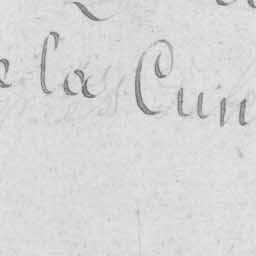 la Cun